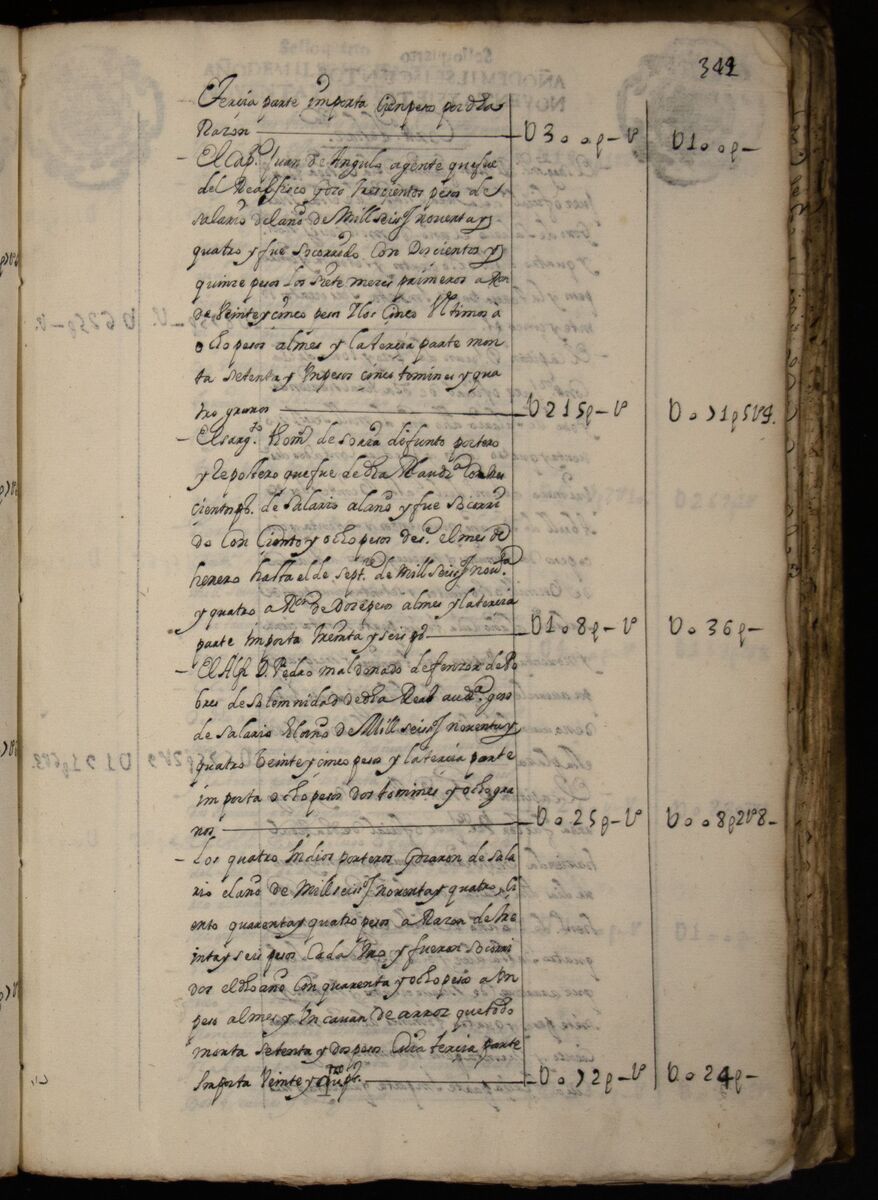 342
tercia parte importa Cien pesos por dha
Razon — U300p-U U100p-
– El Capn. Juan de Angulo agente que fue
del Real fisco gozo trescientos pesos de
salario del año de Mill seisos noventa y
quatro y fue socorrido con Doscientos y
quinze pesos los siete meses primeros a Ron
de Veinte y cinco pesos Y los Cinco Vltimos a
ocho pesos al mes y la tercia parte mon
ta setenta y Vn pesos cinco tomines y qua
tro granos — U215p-U U071p5U4g.
– El sargto. Thom. de difunto portero
y Repostero que fue de dha Rl audia. con du
cientos ps. de salario al año y fue socorri
do con Ciento y ocho pesos des.. el mes de
henero hasta el de Septre. de Mill seisos novta.
y quatro a Ron de Doze pesos al mes y la tercia
parte importa treinta y seis ps — U108p-U U036p-
– El Alfz D. Pedro maldonado defensor de Po
bres de solemnidad de dha Real audia. gozo
de salario El año de Mill seisos noventa y
quatro Veinte y cinco pesos y la tercia parte
importa ocho pesos dos tomines y ocho gra
nos — U025p-U U008p2U8-
– Los quatro Indios porteros gozaron de sala
rio el año de Mill seisos noventa y quatro Ci
ento quarenta y quatro pesos a Razon de tre
inta y seis pesos Cada Vno y fueron socorri
dos el dho año con quarenta y ocho pesos a Vn
peso al mes y Vn cauan de arroz que todo
monta setenta y dos pesos Cuia tercia parte
Importa Veinte y qtro ps. — U072p-U U024p-